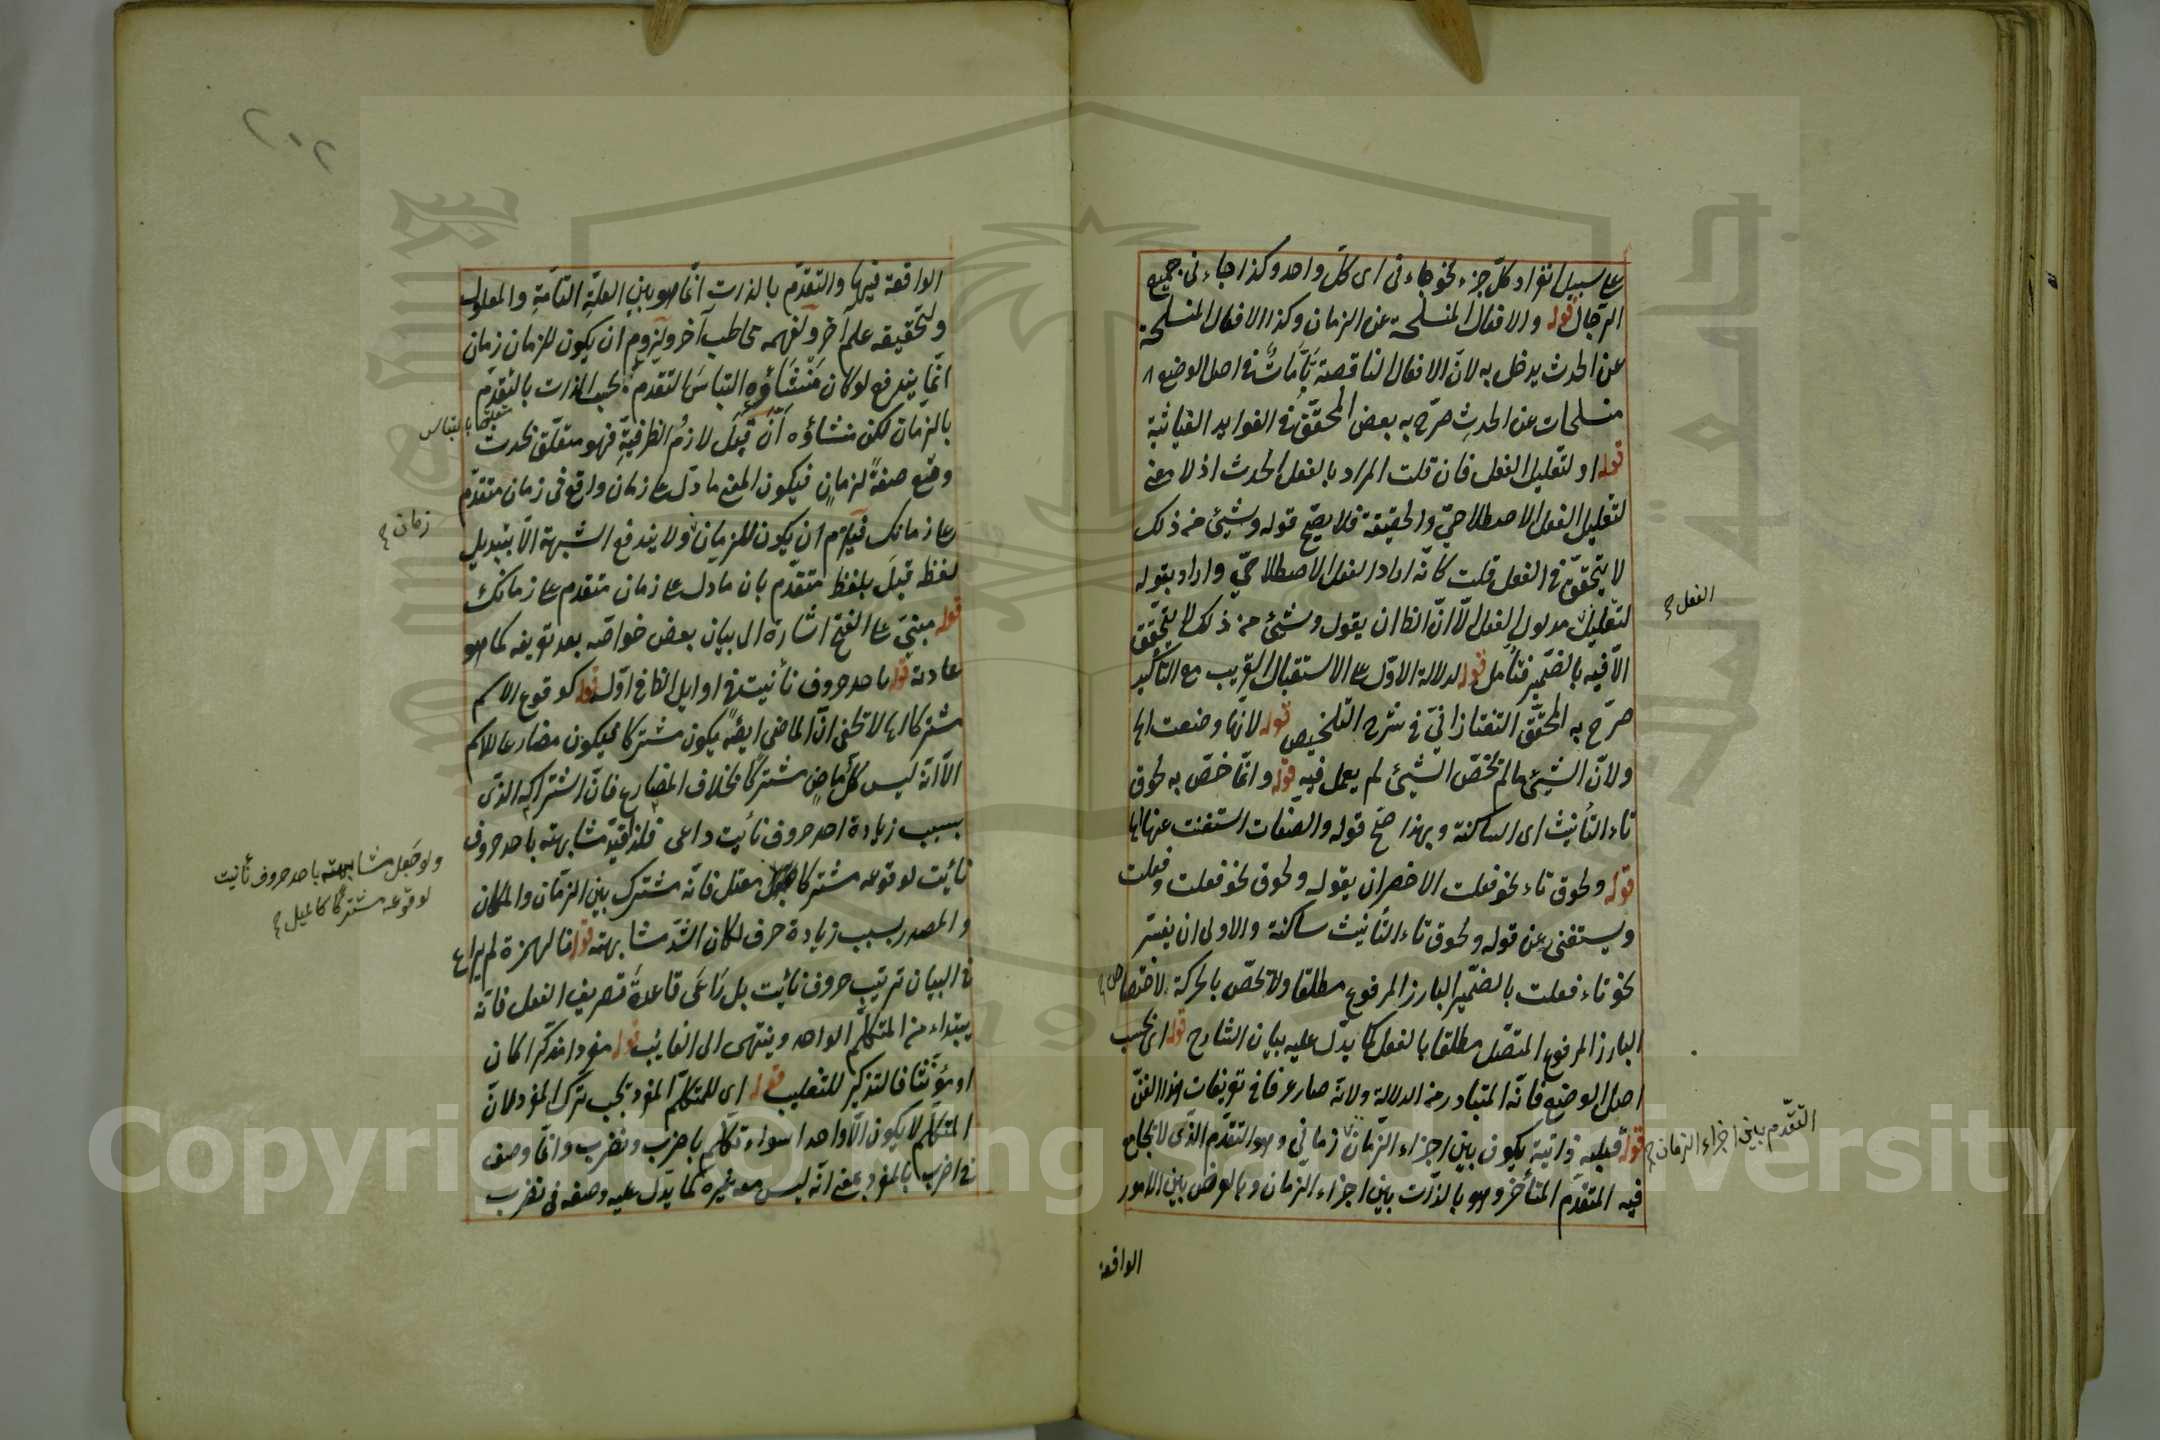 على سبيل انفراد كلّ جزء نحو جاءنى اى كلّ واحد وكذا جاءنى جميع
الرّجال قوله والافعال المنسلخة عن الزمان وكذا الافعال المنسلخة
عن الحدث يدخل به لانّ الافعال الناقصة تامّات فى اصل الوضع
منسلخات عن الحدث صرّح به بعض المحقّق فى الفوايد الغياثية
قوله او لتقليل الفعل فان قلت المراد بالفعل الحدث اذ لا معنى
لتقليل الفعل الاصطلاحيّ والحقيقة فلا يصحّ قوله وشيئ من ذلك
لا يتحقّق فى الفعل قلت كانّه اراد الفعل الاصطلاحيّ واراد بقوله
لتقليل مدلول الفعل الّا انّ الظ ان يقول وشيئ من ذلك لا يتحقّق
الّا فيه بالضمير فتأمل قوله لدلالة الاوّل على الاستقبال القريب مع التاكيد
صرّح به المحقّق التفتازانيّ فى شرح التلخيص قوله لانّها وضعت اه
ولانّ الشيئ مالم يختصّ الشيئ لم يعمل فيه قوله وانّما خصّ به لحوق
تاء التأنيث اى الساكنة وبهذا صحّ قوله والصفات استغنت عنها اه
قوله ولحوق تاء نحو فعلت الاخصر ان يقوله ولحوق نحو فعلت وفعلت
ويستغنى عن قوله ولحوق تاء التأنيث ساكنة والاولى ان يفسّر
نحو تاء فعلت بالضمير البارز المرفوع مطلقا ولا تخصّ بالحركة لاختصاص
البارز المرفوع المتصل مطلقا بالفعل كما يدّل عليه بيان الشارح قوله اى بحسب
اصل الوضع فانّه المتبادر من الدلالة ولانّه صار عرفا فى تعريفات هذا الفنّ
قوله قبليه ذاتية يكون بين اجزاء الزّمان زمانى وهو التقدّم الذّى لا يجامع
فيه المتقدّم المتأخر وهو بالذّات بين اجزاء الزّمان وبالعرض بين الامور
الواقعة
الفعل
التقدّم بين اجزاء الزمان
٢٠٢
الواقعة فيها والتقدّم بالذات انّما هو بين العلّة التامّة والمعلول
ولتحقيقه علم آخر ولفهمه مخاطب آخر ويلزوم ان يكون للزمان زمان
انّما يندفع لو كان منشاؤه التباس التقدّم بحسب الذات بالتقدّم
بالزّمان لكن منشاؤه انّ قبل لازم الظرفيّة فهو متعلّق بحدث
وقع صفة لزمان فيكون المعنى ما دلّ على زمان واقع فى زمان متقدّم
على زمانك فيلزم ان يكون للزمان ولا يندفع الشبهة الّا بتبديل
لفظ قبل بلفظ متقدّم بان ما دل على زمان متقدم على زمانك
قوله مبنيّ على الفتح اشارة الى بيان بعض خواصّه بعد تعريفه كما هو
عادته قوله باحد حروف نأيت فى اوايل الظ فى اوّله قوله كوقوع الاسم
مشتركا اه لا تخفى انّ الماضى ايضا يكون مشتركا فيكون مضارعا للاسم
الّا انّه ليس كلّ ماض مشتركا بخلاف المضارع فانّ اشتراكه الذّى
بسبب زيادة احد حروف نأيت داعى فلذا قيّد مشابهته باحد حروف
نأيت لوقوعه مشتركا مقتل فانّه مشترك بين الزّمان والمكان
والمصدر بسبب زيادة حرف لكان اشدّ مشابهته قوله فالهمزة لم يراع
فى البيان ترتيب حروف نأيت بل راعى قاعدة تصريف الفعل فانّه
يبتداء من المتكلّم الواحد وينتهى الى الغايب قوله مفردا مذكّرا كان
او مؤنّثا فالتذكير للتغليب قوله اى للمتكلّم المفرد يجب ترك المفرد لانّ
المتكلّم لا يكون الّا واحدا سواء تكلّم باضرب ونضرب وانّما وصف
فى اضرب بالمفرد بمعنى انّه ليس معه غيره كما يدّل عليه وصفه فى نضرب
زمان
ولو جعل مشابهته باحد حروف نأيت
لوقوعه مشتركا
Copyright © King Saud University